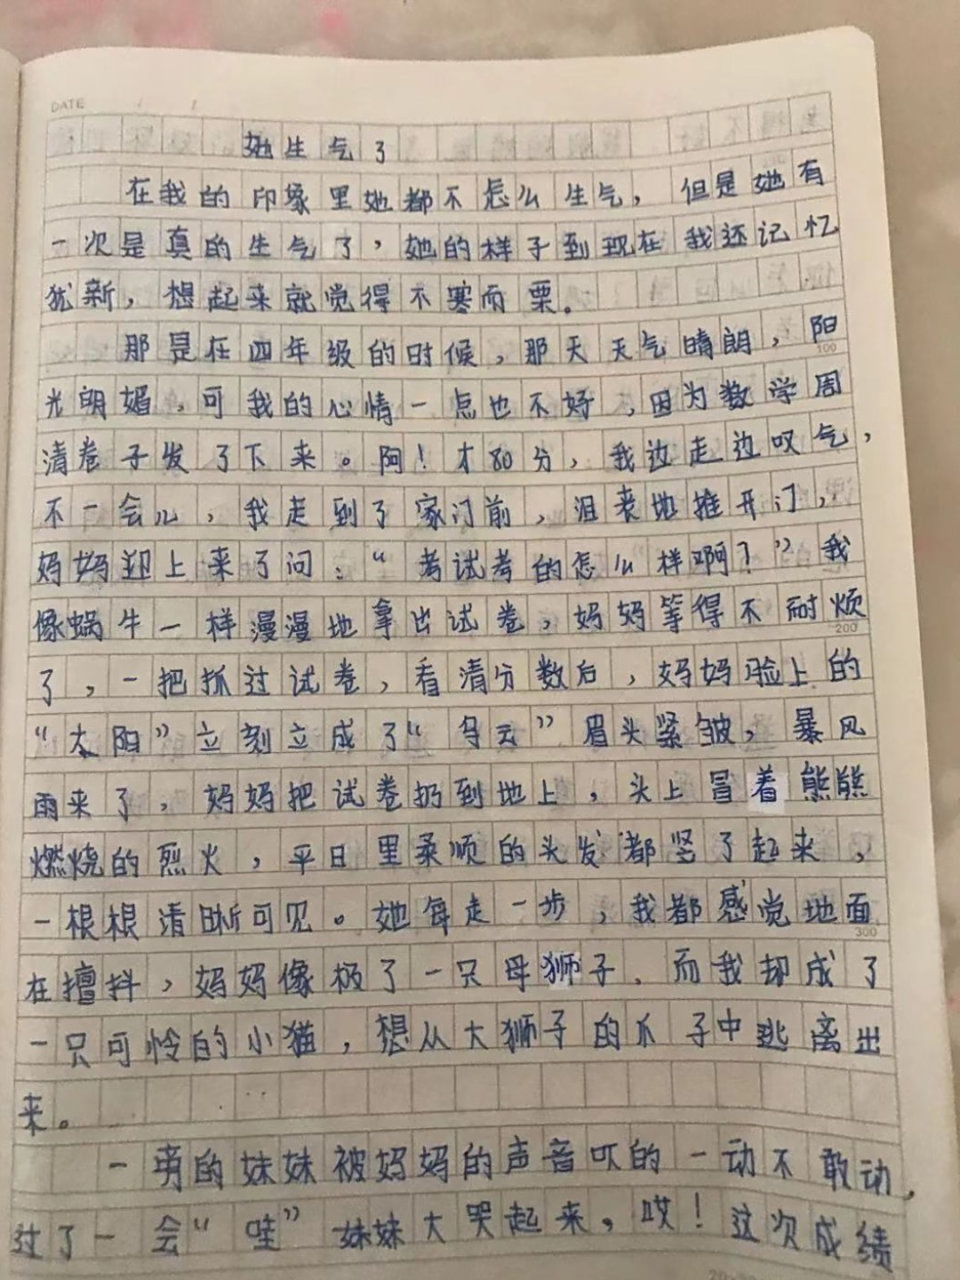 DATE
她生气了
在我的印象里她都不怎么生气，但是她有
一次是真的生气了，她的样子到现在我还记忆
犹新，想起来就觉得不寒而栗。
那是在四年级的时候，那天天气晴朗，阳
100
光明媚，可我的心情一点也不好，因为数学周
清卷子发了下来。阿！才80分，我边走边叹气，
不一会儿，我走到了家门前，沮丧地推开门，
妈妈迎上来了问：“考试考的怎么样啊？”我
像蜗牛一样漫漫地拿出试卷，妈妈等得不耐烦
200
了，一把抓过试卷，看清分数后，妈妈脸上的
“太阳”立刻立成了“乌云”眉头紧皱，暴风
雨来了，妈妈把试卷扔到地上，头上冒着熊熊
燃烧的烈火，平日里柔顺的头发都竖了起来，
一根根清晰可见。她每走一步，我都感觉地面
300
在擅抖，妈妈像极了一只母狮子，而我却成了
一只可怜的小猫，想从大狮子的爪子中逃离出
来。
一旁的妹妹被妈妈的声音吓的一动不敢动，
过了一会“哇”妹妹大哭起来，哎！这次成绩